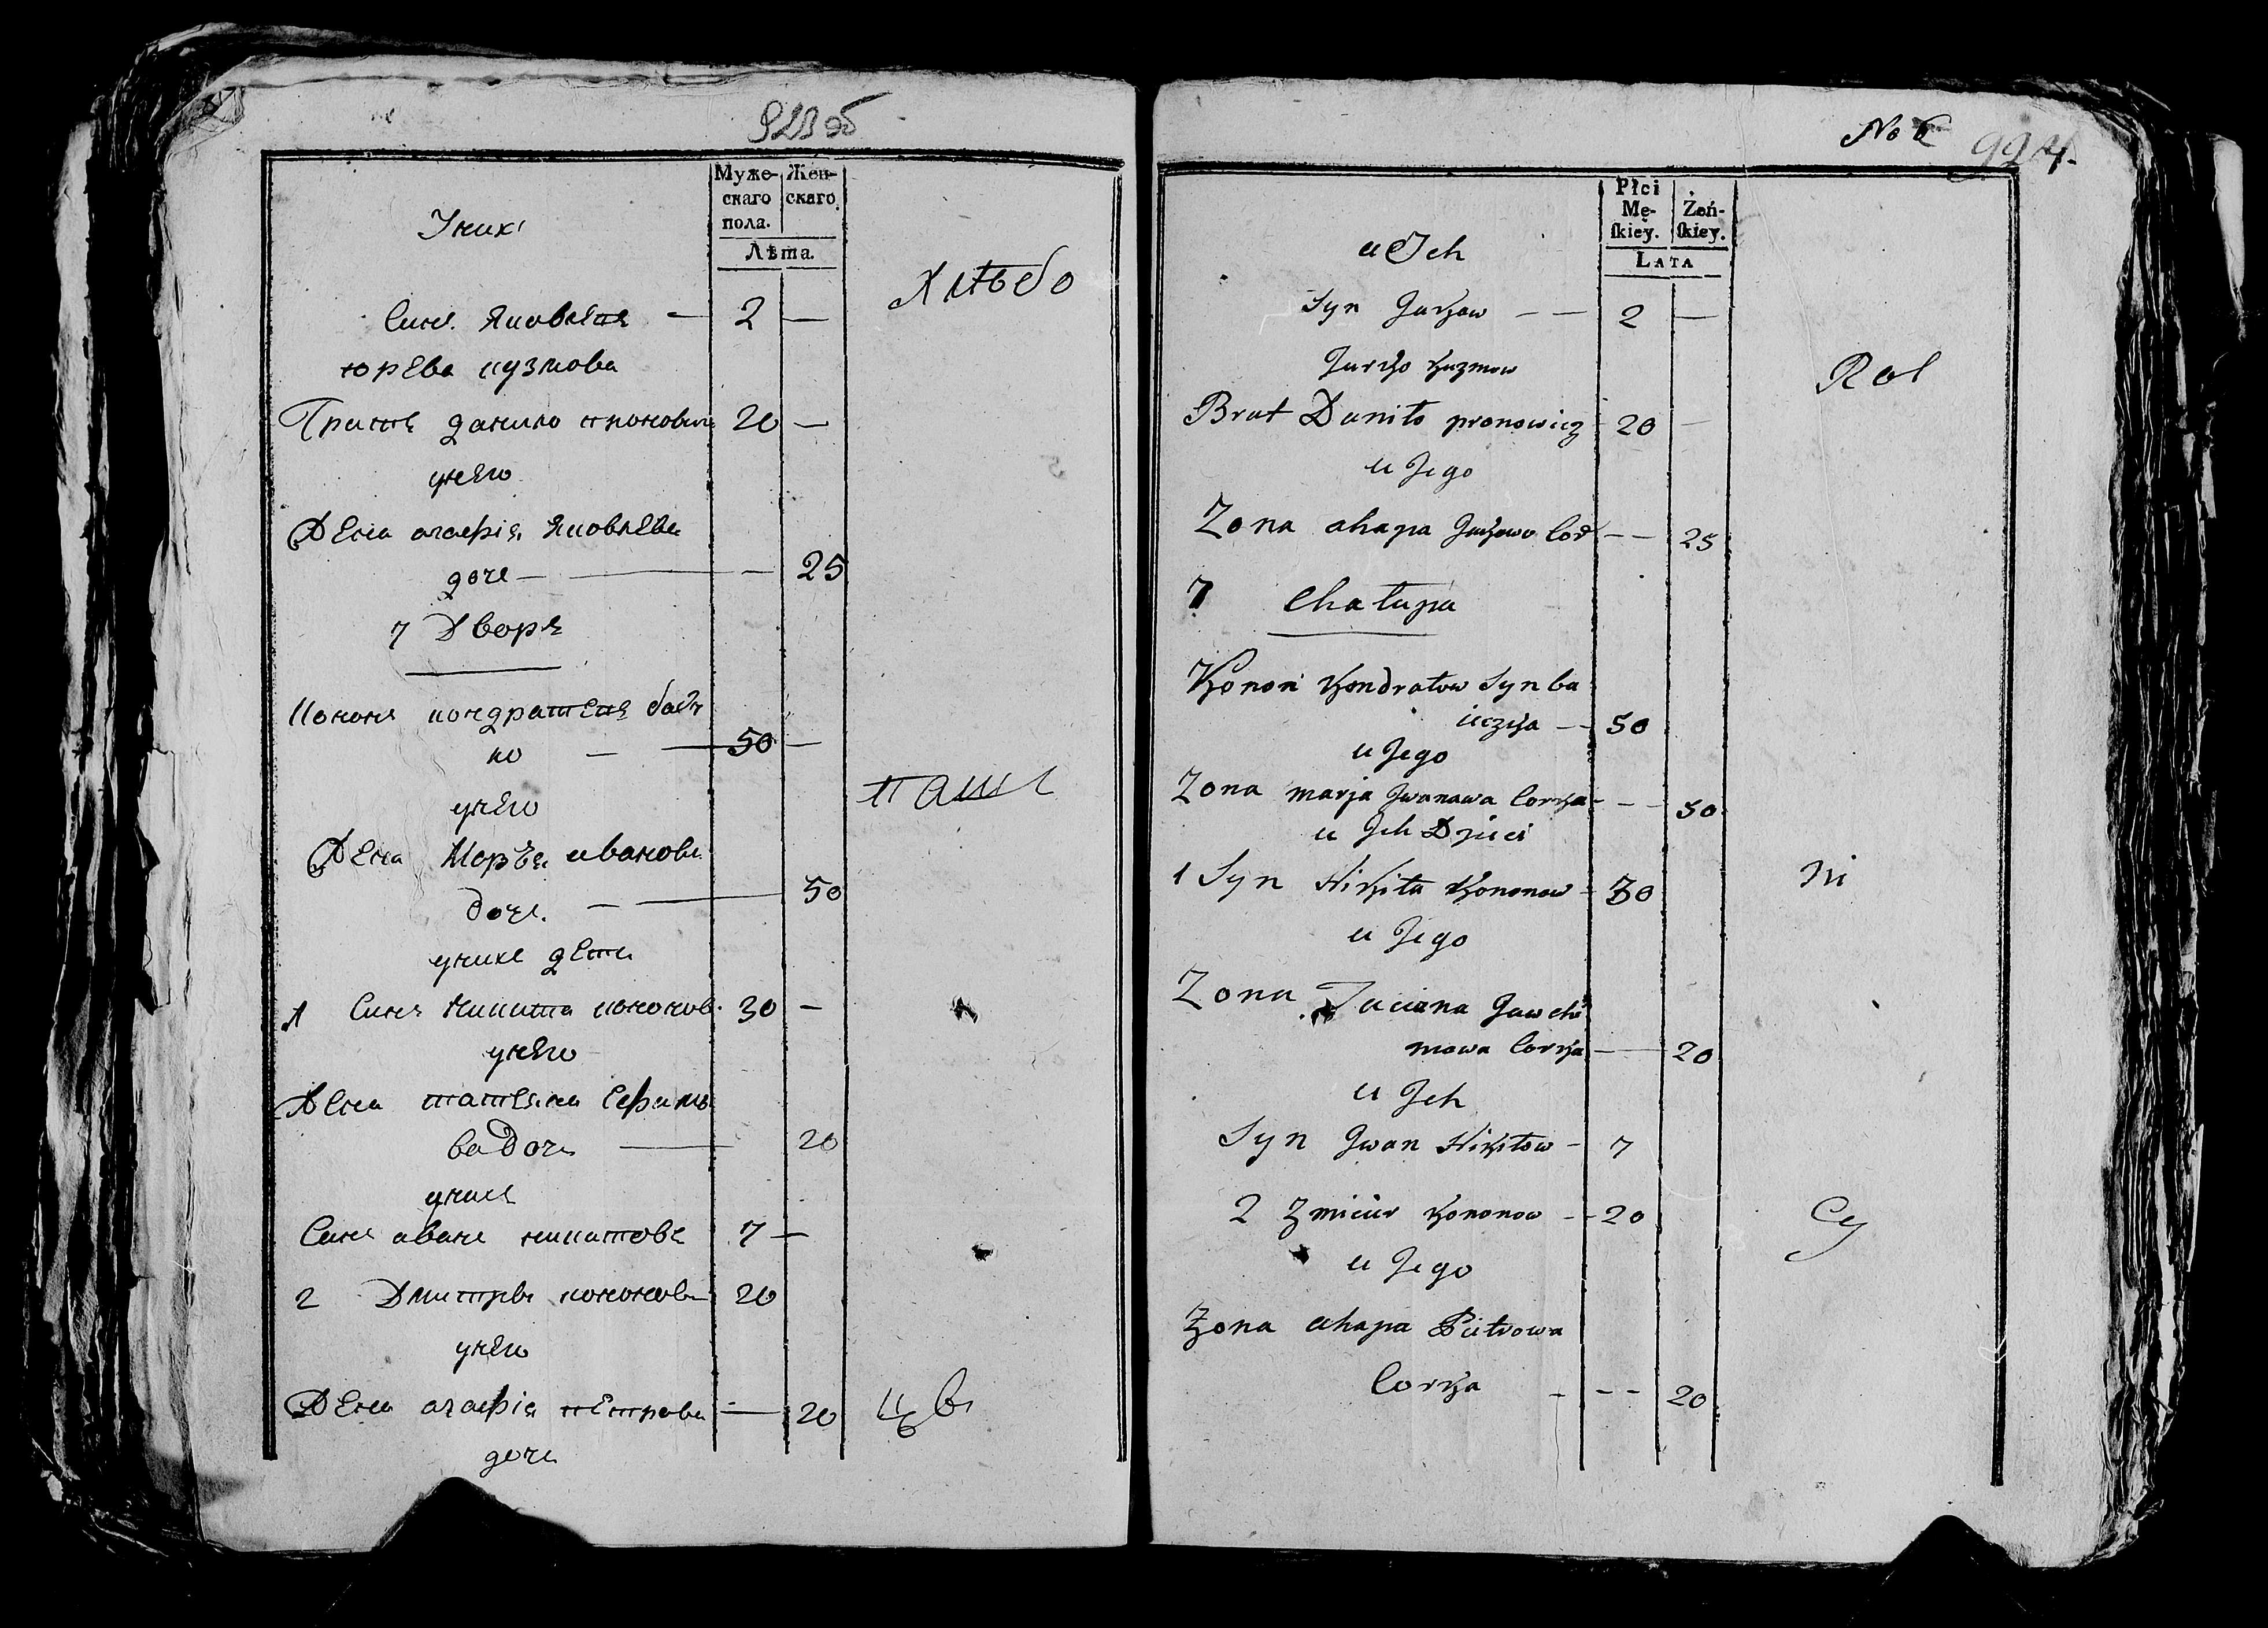 923об
Муже-
скаго
пола.
Жен-
скаго
Лѣта.
Уних
хлѣбо
Синъ Яковѣцъ — 2 —
юрева кузмова
Братъ данило проновичъ 20 —
унего
Жена агафія Яковлева
дочь — — 25
7 Дворъ
Кононъ кондратецъ бай
ко — 50 —
унего
паше
Жена Маръя иванова
дочь. — 50
уних дети
1 Синъ никита кононовъ 30 —
унего
Жена татеяна ефимо
ва дочь — 20
уних
Синъ иванъ никитовъ 7 —
2 Дмитръ кононовъ 20
унего
Жена агафія петрова — 20
дочь
цъвъ
No 6
924.
Płci
Mę-
ſkiey.
Żeń-
ſkiey.
LATA
u Ich
Syn Jackow — — 2 —
Jurko Kuzmow
Rol
Brat Daniło pronowicz 20 —
u Jego
Zona ahapa Jackowa Cor — — 25
7 Chałupa
Konon Kondratow Syn ba
iczka — 50
u Jego
Zona marja Jwanawa Corka — — 50
u Jch Dzieci
1 Syn Nikita Kononow 30
ni
u Jego
Zona Taciana Jawchi
mowa Corka — 20
u Jch
Syn Jwan Nikitow — 7
2 Zmicier Kononow — 20
Cy
u Jego
Zona ahapa Pietrowa
Corka — — — 20